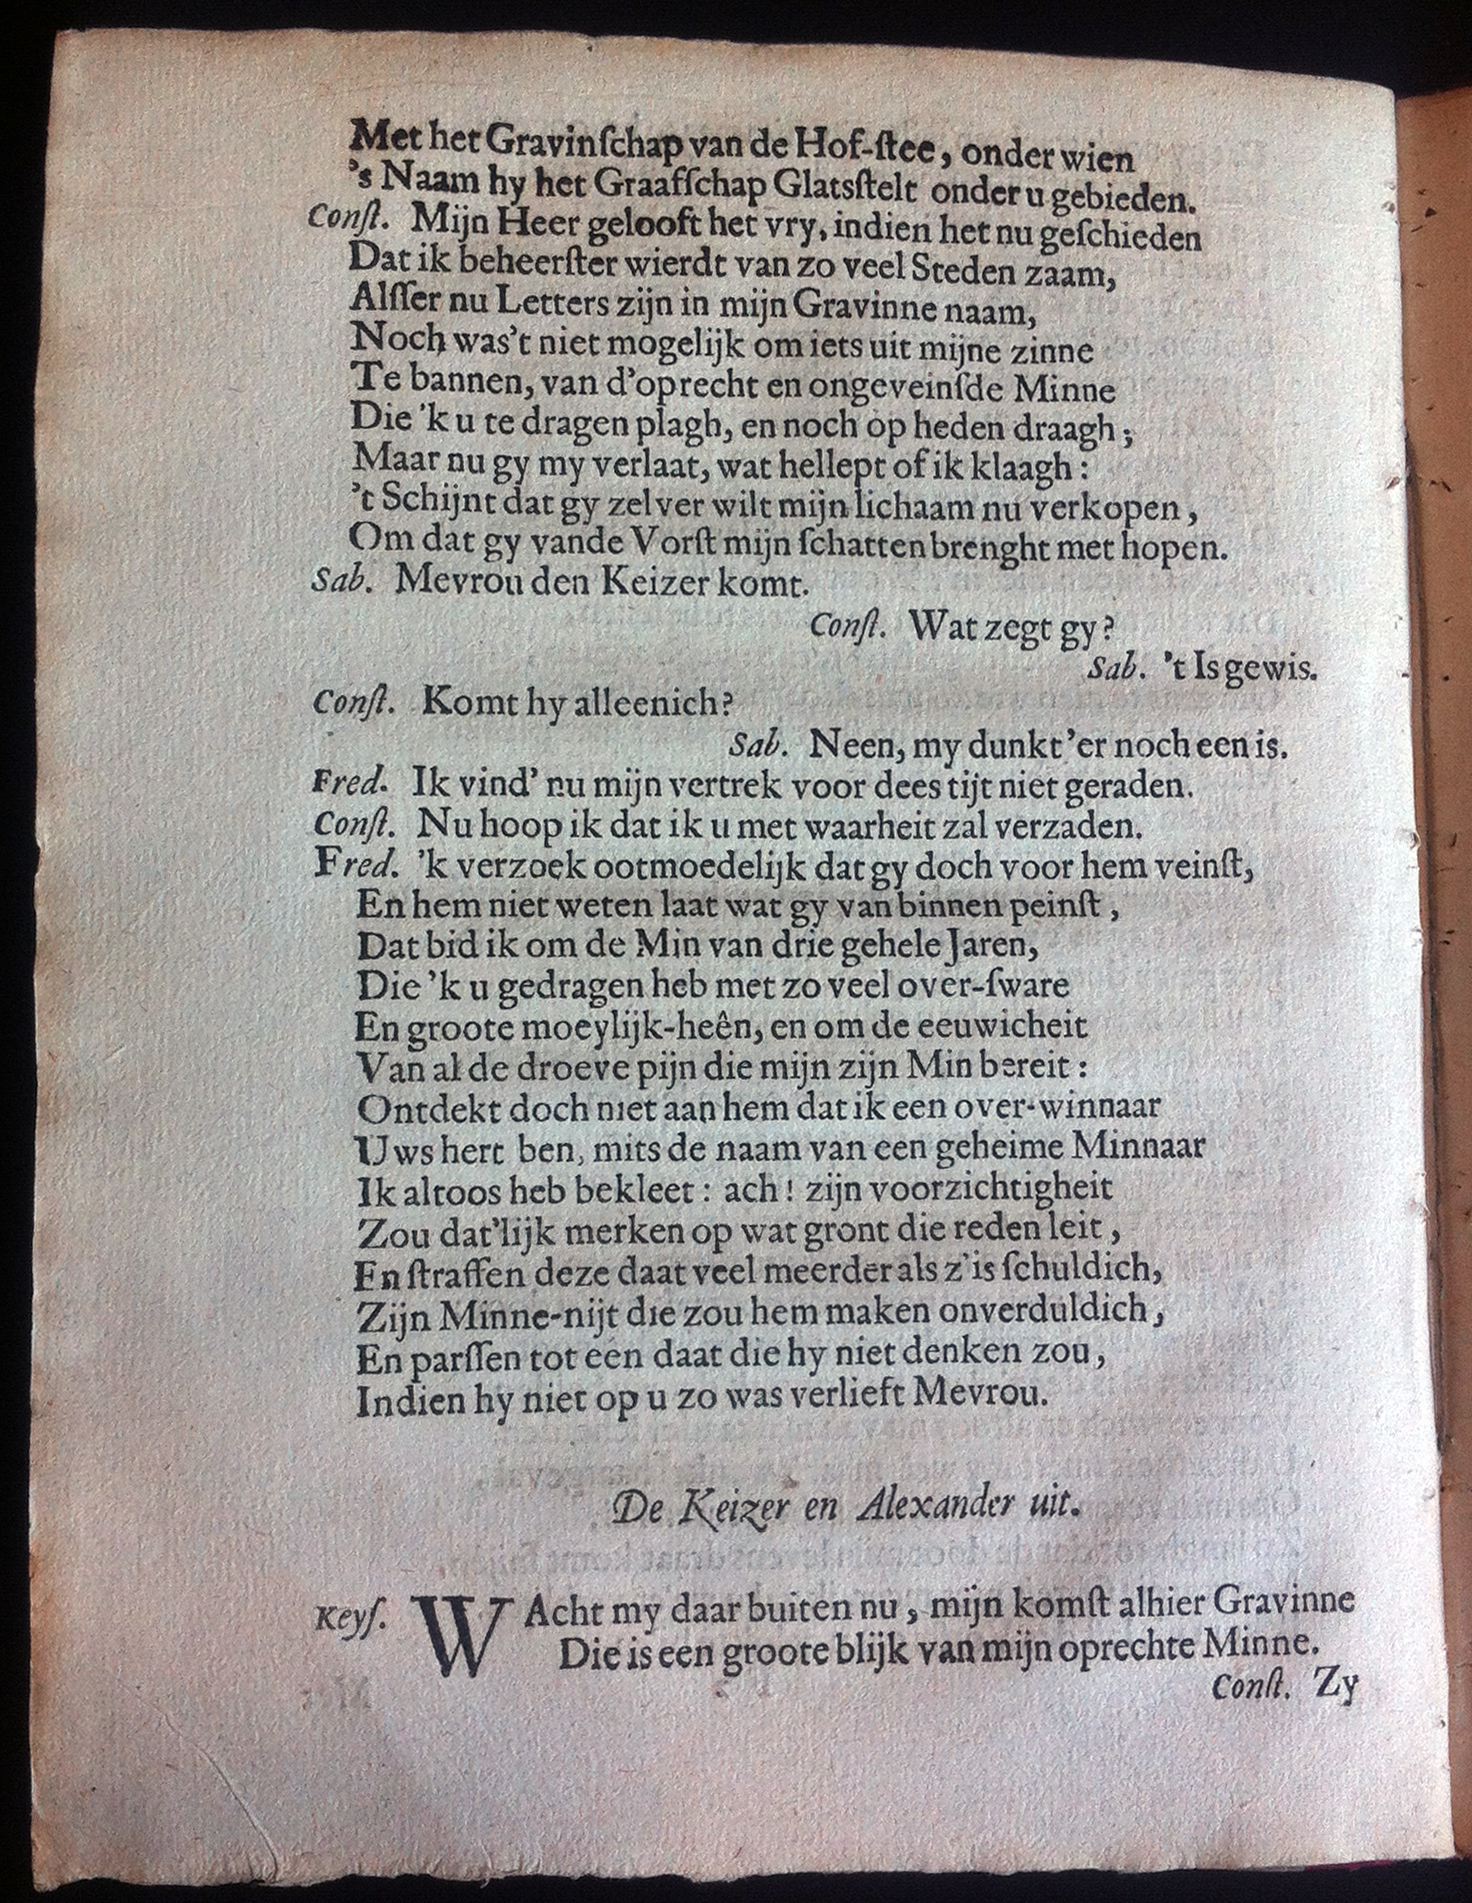 Met het Gravinſchap van de Hof-ſtee, onder wien
's Naam hy het Graafſchap Glatsſtelt onder u gebieden.
Conſt. Mijn Heer gelooft het vry, indien het nu geſchieden
Dat ik beheerſter wierdt van zo veel Steden zaam,
Alſſer nu Letters zijn in mijn Gravinne naam,
Noch was't niet mogelijk om iets uit mijne zinne
Te bannen, van d'oprecht en ongeveinſde Minne
Die 'k u te dragen plagh, en noch op heden draagh;
Maar nu gy my verlaat, wat hellept of ik klaagh:
't Schijnt dat gy zelver wilt mijn lichaam nu verkopen,
Om dat gy vande Vorſt mijn ſchatten brenght met hopen.
Sab. Mevrou den Keizer komt.
Conſt. Wat zegt gy?
Sab. 't Is gewis.
Conſt. Komt hy alleenich?
Sab. Neen, my dunkt 'er noch een is.
Fred. Ik vind' nu mijn vertrek voor dees tijt niet geraden.
Conſt. Nu hoop ik dat ik u met waarheit zal verzaden.
Fred. 'k verzoek ootmoedelijk dat gy doch voor hem veinſt,
En hem niet weten laat wat gy van binnen peinſt,
Dat bid ik om de Min van drie gehele Jaren,
Die 'k u gedragen heb met zo veel over-ſware
En groote moeylijk-heên, en om de eeuwicheit
Van al de droeve pijn die mijn zijn Min bereit:
Ontdekt doch niet aan hem dat ik een over-winnaar
Uws hert ben, mits de naam van een geheime Minnaar
Ik altoos heb bekleet: ach! zijn voorzichtigheit
Zou dat'lijk merken op wat gront die reden leit,
En ſtraffen deze daat veel meerder als z'is ſchuldich,
Zijn Minne-nijt die zou hem maken onverduldich,
En parſſen tot een daat die hy niet denken zou,
Indien hy niet op u zo was verlieft Mevrou.
De Keizer en Alexander uit.
Keyſ. WAcht my daar buiten nu, mijn komſt alhier Gravinne
Die is een groote blijk van mijn oprechte Minne.
Conſt. Zy